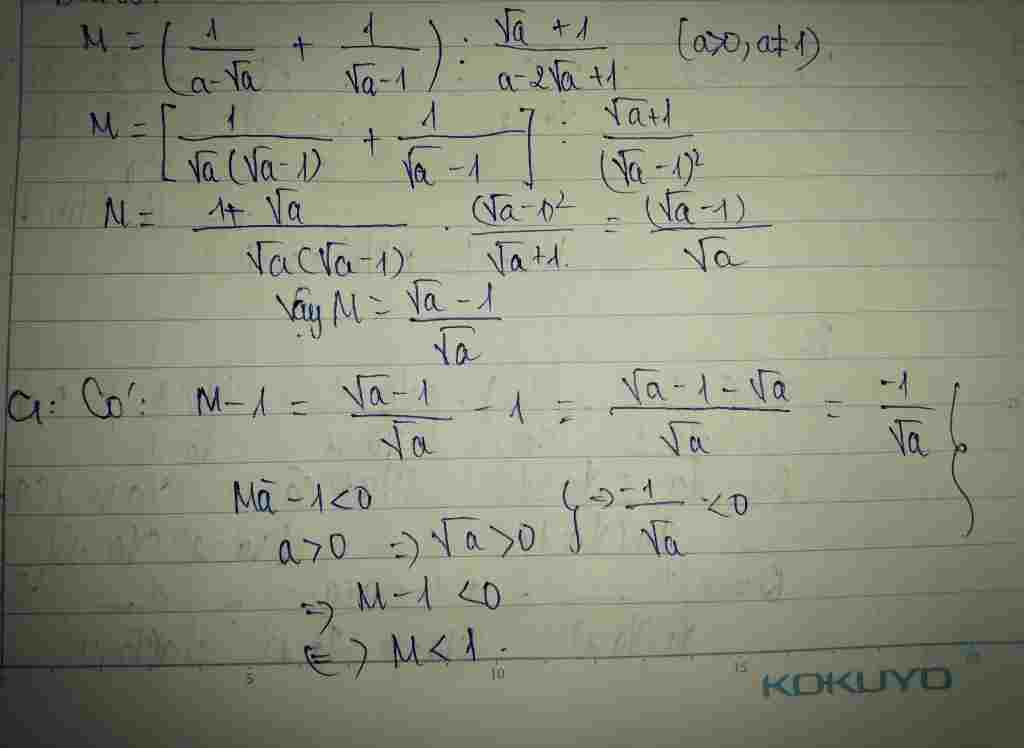 M = (1/(a-√a) + 1/(√a-1)) : (√a +1)/(a-2√a+1) (a>0, a≠1).
M = [1/(√a(√a-1)) + 1/(√a-1)] : (√a+1)/(√a-1)²
M = (1+√a)/(√a(√a-1)) . (√a-1)²/(√a+1) = (√a-1)/√a
Vậy M = (√a-1)/√a
Có: M-1 = (√a-1)/√a - 1 = (√a-1-√a)/√a = -1/√a }
Mà -1<0
a>0 => √a>0 } => -1/√a <0
=> M-1 <0
<=> M<1.
5 10 15
KOKUYO